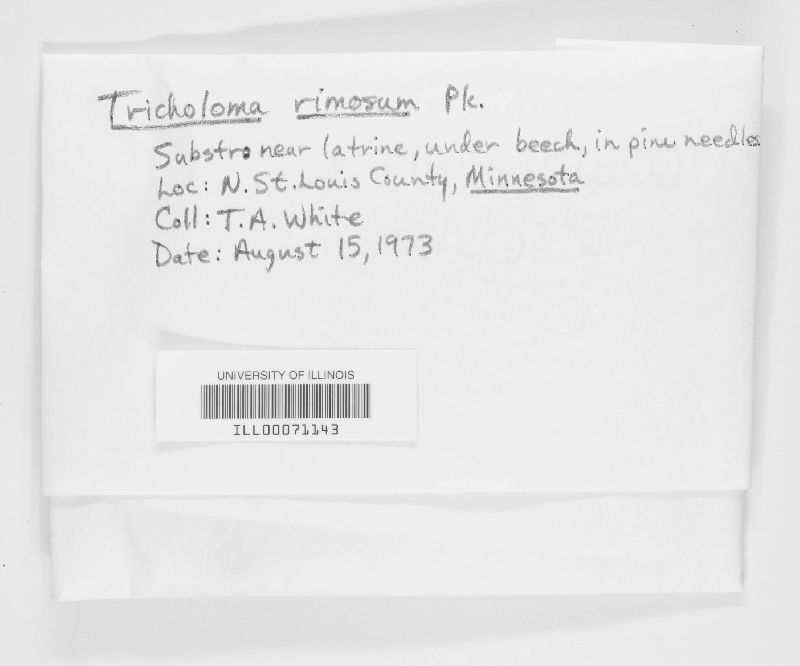 Tricholoma rimosum Pk.
Substr. near latrine, under beech, in pine needles
Loc: N. St. Louis County, Minnesota
Coll: T. A. White
Date: August 15, 1973
UNIVERSITY OF ILLINOIS
ILL00071143